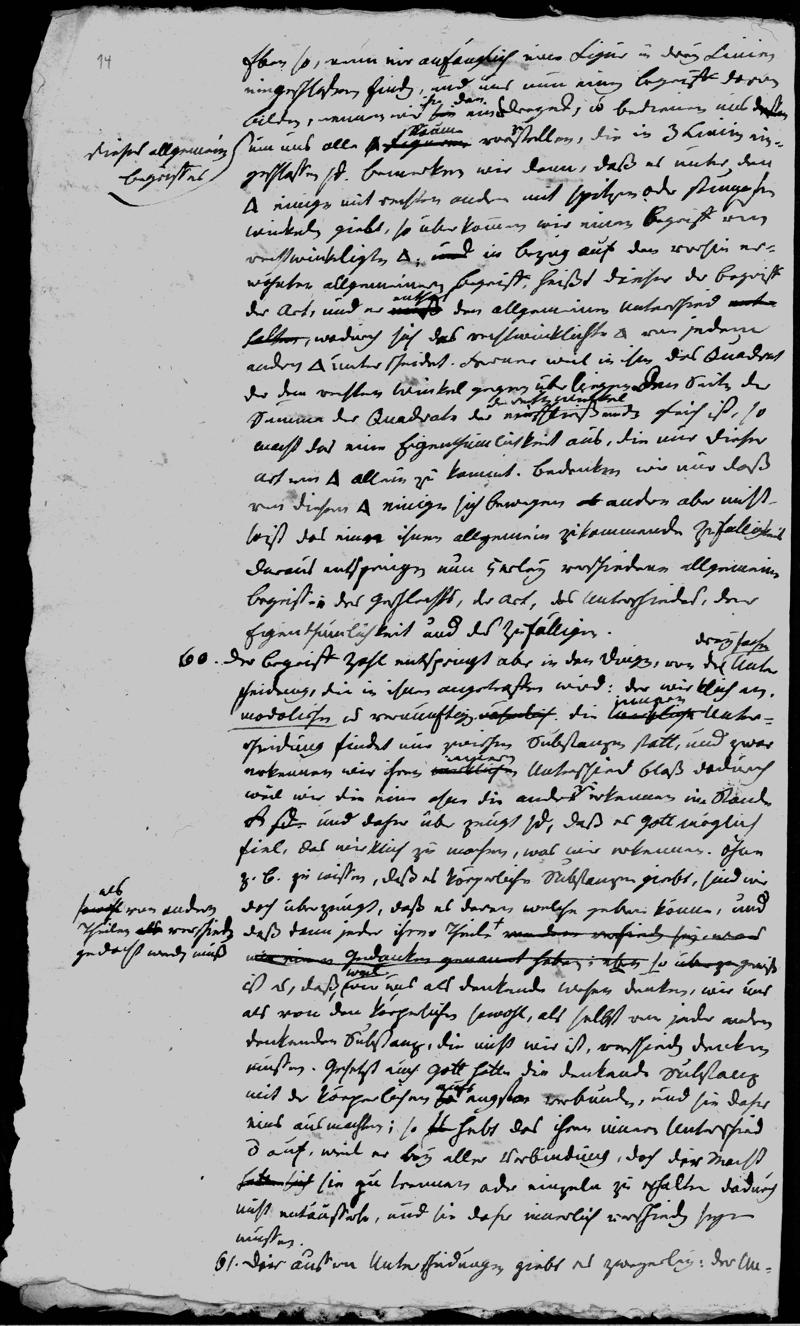 14
Eben so, wenn wir anfänglich eine Figur in drey Linien
eingeschlossen finden, und uns nun einen Begriff davon
bilden, nennen wir ihn den eines Dreyecks; so bedienen uns dessen
dieses allgemeinen
Begriffes
um uns alle Räume vorstellen, die in 3 Linien ein-
geschlossen sd. Bemerken wir dann, daß es unter den
Δ einige mit rechten andere mit spitzen oder stumpfen
Winkeln giebt, so überkommen wir einen Begriff vom
rechtwinkligten Δ; und in bezug auf den vorhin er-
wähnten allgemeinern Begriff, heißt dieser der Begriff
der Art, und er enthält den allgemeinen Unterschied
wodurch sich das rechtwinklichte Δ von jedem
andern Δ unterscheidet. Ferner weil in ihm das Quadrat
der dem rechten Winkel gegen über liegenden Seite der
Summe der Quadrate der gleich ist, so
macht das eine Eigenthümlichkeit aus, die nur dieser
Art von Δ allein zu kommt. Bedenken wir nur daß
von diesen Δ einige sich bewegen andere aber nicht
so ist das eine ihnen allgemein zukommende Zufälligkeit
Daraus entspringen nun 5erley verschiedene allgemeine
Begriffe des Geschlechts, der Art, des Unterschiedes, der
Eigenthümlichkeit und des Zufälligen.
60. Der Begriff Zahl entspringt aber in den Dingen, von der dreyfachen Unter
scheidung, die in ihnen angetroffen wird: der wirklichen,
modalischen u vernünftigen. die innere Unter-
scheidung findet nur zwischen Substanzen statt, und zwar
erkennen wir ihren innern Unterschied blos dadurch
weil wir die eine ohne die andere erkennen im Stande
sd. und daher über zeugt sd, daß es Gott möglich
fiel, das wirklich zu machen, was wir erkennen. Ohne
z. B. zu wissen, daß es körperliche Substanzen giebt, sind wir
doch überzeugt, daß es deren welche geben könne, und
daß dann jeder ihrer Theile
als
von andern
Theilen verschieden
gedacht werden muß
eben so
ist es, daß, weil wir uns als denkende Wesen denken, wir uns
als von den körperlichen sowohl, als selbst von jeder andern
denkenden Substanz, die nicht wir ist, verschieden denken
müssen. Gesetzt auch Gott hätte die denkende Substanz
mit der körperlichen aufs engste verbunden, und sie daher
eins ausmachten; so hebt das ihren innern Unterschied
auf, weil er bey aller Verbindung, doch der Macht
sie zu trennen oder einzeln zu erhalten dadurch
nicht entäussert, und sie daher innerlich verschieden seyn
müssen.
61. Der äussern Unterscheidungen giebt es zweyerley: der Un-